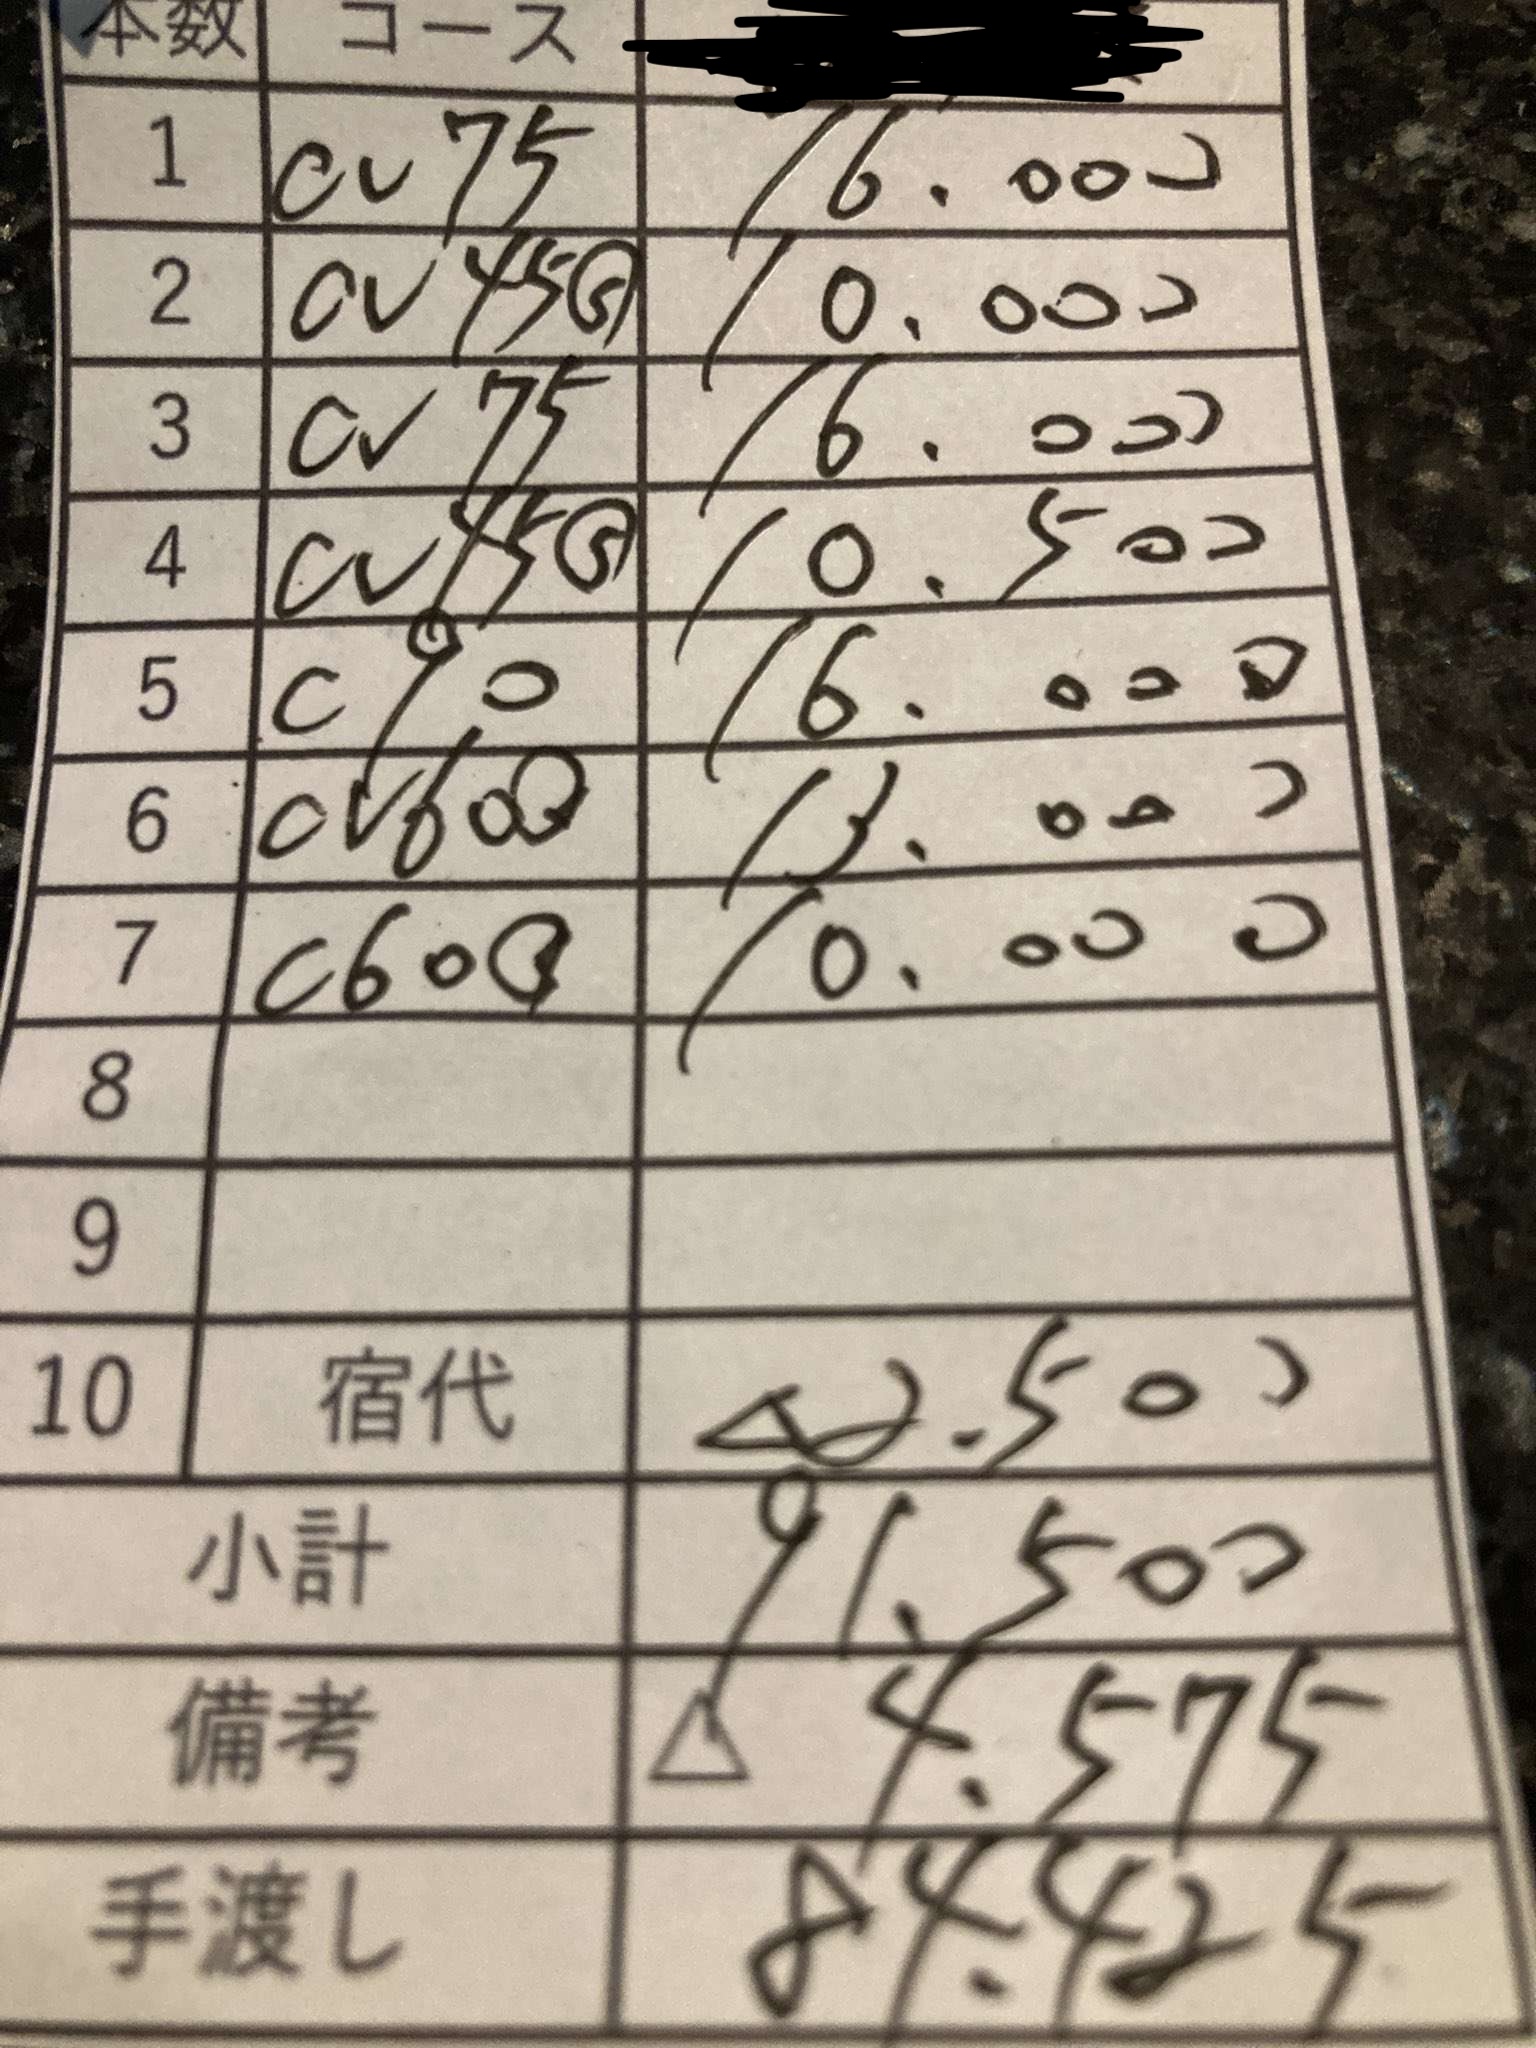 本数 コース
1 CV 75 16.000
2 CV 45Ⓢ 10.000
3 CV 75 16.000
4 CV 45Ⓢ 10.500
5 C 90 16.000
6 CV60 13.000
7 C60 10.000
8
9
10 宿代 △2.500
小計 91.500
備考 △ 4.575
手渡し 84.425